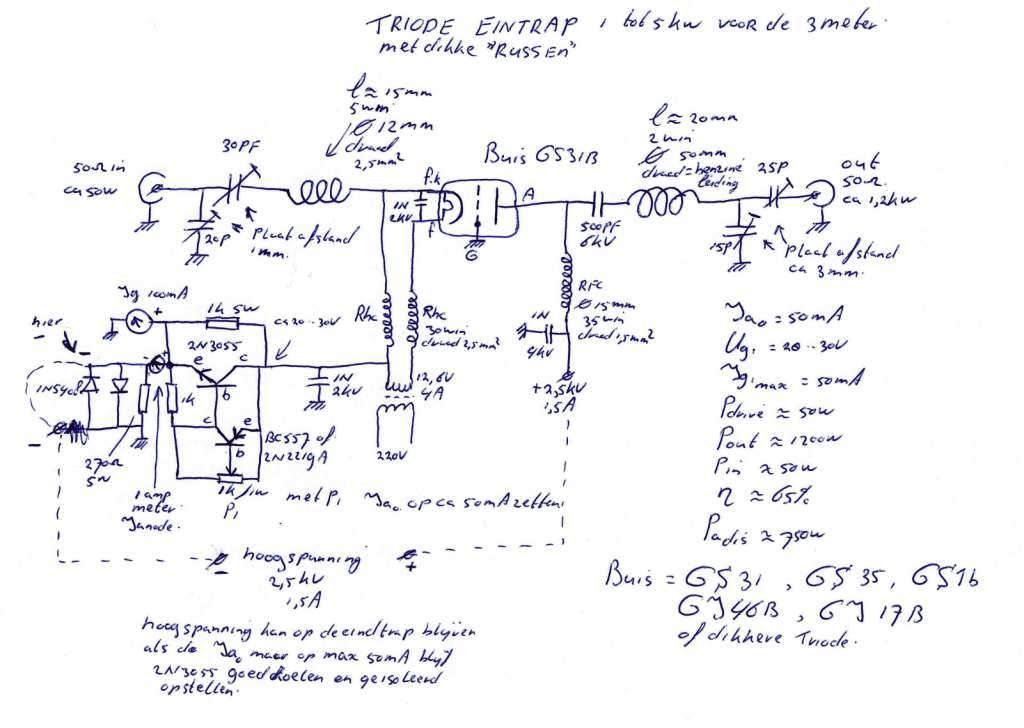 TRIODE EINTRAP 1 tot 5kw voor de 3 meter.
met dikke "RUSSEN"
l ≈ 15mm
5win
Ø 12mm
draad
2,5mm²
l ≈ 20mm
2win
Ø 50mm
draad = benzine
leiding
50Ω in
ca 50w
30PF
20P
Plaat afstand
1mm.
f.k
1N
2kV
f
Buis GS31B
A
G
500PF
6kV
25P
out
50Ω
ca 1,2kw
15P
Plaat afstand
ca 3mm.
RFC
Ø 15mm
35win
draad 1,5mm²
1N
4kV
+2,5kV
1,5A
Jg 100mA
+
1k 5W
ca 20..30V
Rhc
Rhc
30win
draad 2,5mm²
hier
-
-
+
2N3055
e
c
b
1N5408
1k
1N
2kV
12,6V
4A
220V
-
c
e
b
BC557 of
2N2219A
270Ω
5W
1k/1W
P1
1 amp
meter
Janode.
met P1 Jao op ca 50mA zetten
Jao = 50mA
Ug1 = 20..30V
Jg1max = 50mA
Pdrive ≈ 50w
Pout ≈ 1200w
Pin ≈ 50w
η ≈ 65%
Padis ≈ 750w
- hoogspanning +
2,5kV
1,5A
Buis = GS31, GS35, GS1b
GJ46B, GJ17B
of dikkere Triode.
hoogspanning kan op de eindtrap blijven
als de Jao maar op max 50mA blijft
2N3055 goed koelen en geisoleerd
opstellen.